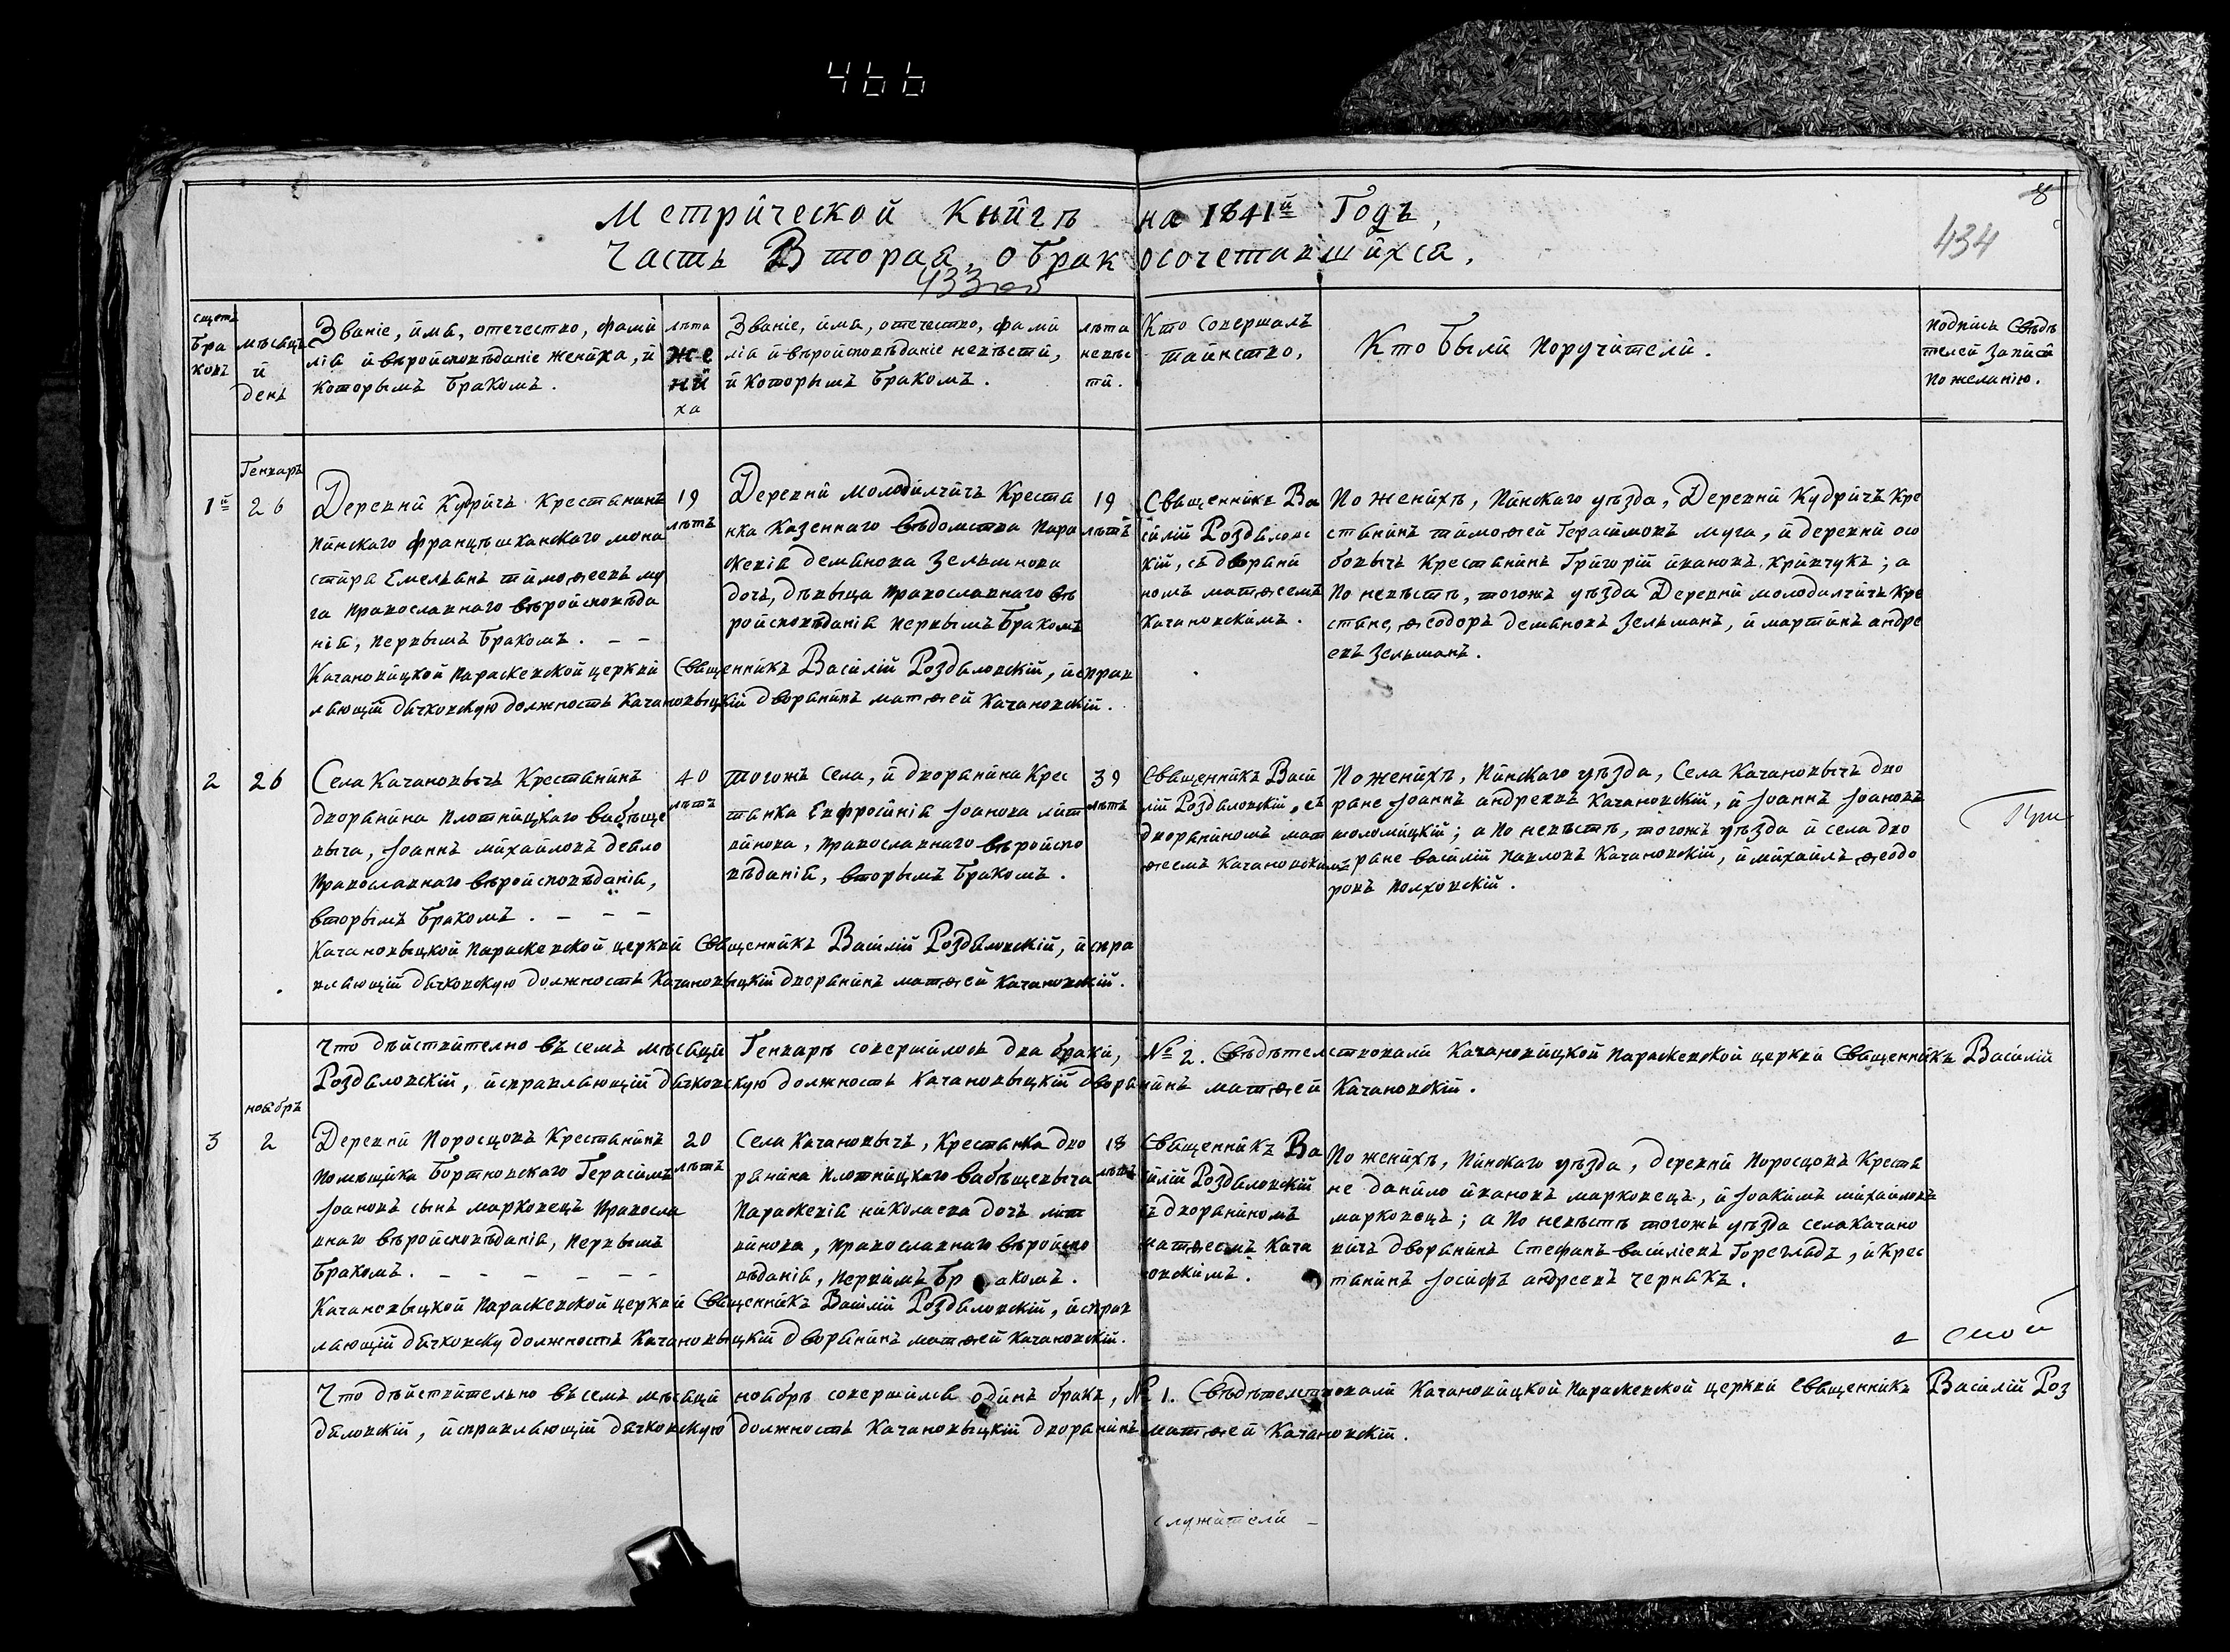 466
Метрической Книгѣ на 1841й Годъ,
Часть Вторая, о бракосочетавшихся.
433 об
8
434
счетъ браковъ
мѣсяцъ и день
Званіе, имя, отечество, фами
лія и вѣроисповѣданіе жениха, и
которымъ бракомъ.
лѣта
же
ни
ха
Званіе, имя, отечество, фами
лія и вѣроисповѣданіе невѣсти,
и которымъ бракомъ.
лѣта
невѣс
ти.
Кто совершалъ
таинство,
Кто были поручители.
подпись свѣдѣ
телей записи
по желанію.
Генваръ
1й
26
Деревни Кудричъ Крестянинъ
Пинскаго францѣшканскаго мона
стиря Емельянъ тимоѳеевъ му
га православнаго вѣроисповѣда
нія, первымъ бракомъ. – –
19
лѣтъ
Деревни молодилчичъ Креста
нка Казеннаго вѣдомства пара
скевія демянова Зельманова
дочъ, дѣвыца православнаго вѣ
роисповѣданія первымъ бракомъ
19
лѣтъ
Священникъ Ва
силій Роздяловс
кій, съ дворяни
номъ матѳеемъ
Качановскимъ.
По женихѣ, Пинскаго уѣзда, Деревни Кудричъ Кре
стянинъ тимоѳей Герасимовъ муга, и деревни осо
бовычъ Крестянинъ Григорій ивановъ кривчукъ; а
По невѣстѣ, тогожъ уѣзда Деревни молодилчичъ Кре
стяне, ѳеодоръ демяновъ Зельманъ, и мартинъ андре
евъ Зельманъ.
Качановицкой параскевской церкви Священникъ Василій Роздяловскій, исправ
ляющій дячковскую должность Качановыцкій дворянинъ матѳей Качановскій.
2
26
Села Качановычъ Крестянинъ
дворянина плотницкаго вабѣще
выча, Іоаннъ михайловъ дейло
православнаго вѣроисповѣданія,
вторымъ бракомъ. – – –
40
лѣтъ
тогожъ села, и дворянина Крес
тянка Евфросинія Іоанова лит
винова, православнаго вѣроиспо
вѣданія, вторымъ бракомъ.
39
лѣтъ
Священникъ Васи
лій Роздяловскій, съ
дворяниномъ мат
ѳеемъ Качановскимъ
По женихѣ, Пинскаго уѣзда, Села Качановычъ дво
ряне Іоаннъ андреевъ Качановскій, и Іоаннъ Іоановъ
шоломицкій; а По невѣстѣ, тогожъ уѣзда и села дво
ряне василій павловъ Качановскій, и михаилъ ѳеодо
ровъ полховскій.
При
Качановыцкой параскевской церкви Священникъ Василій Роздяловскій, исправ
вляющій дячковскую должность Качановыцкій дворянинъ матѳей Качановскій.
Что дѣйствително въ семъ мѣсяци Генварѣ совершилось два браки, № 2. Свѣдѣтелствовали Качановицкой параскевской церкви Священникъ Василій
Роздяловскій, исправляющій дячковскую должность Качановыцкій дворянинъ матѳей Качановскій.
ноябръ
3
2
Деревни Поросцовъ Крестянинъ
помѣщика бортновскаго Герасимъ
Іоановъ сынъ марковецъ правосла
внаго вѣроисповѣданія, первымъ
бракомъ. – – – – – –
20
лѣтъ
Села Качановычъ, Крестянка дво
рянина плотницкаго вабѣщевыча
параскевія николаева дочъ лит
винова, православнаго вѣроиспо
вѣданія, первимъ бракомъ.
18
лѣтъ
Священникъ Ва
силій Роздяловскій
съ дворяниномъ
матѳеемъ Кача
новскимъ.
По женихѣ, Пинскаго уѣзда, деревни поросцовъ Крестя
не данило ивановъ марковецъ, и Іоакимъ михайловъ
марковецъ; а По невѣстѣ тогожъ уѣзда села Качано
вичъ дворянинъ Стефанъ василіевъ Гореглядъ, и Крес
тянинъ Іосифъ андреевъ чернякъ.
Качановыцкой параскевской церкви Священникъ Василій Роздяловскій, исправ
ляющій дячковску должность Качановыцкій дворянинъ матѳей Качановскій.
Что дѣйствительно въ семъ мѣсяци ноябрѣ совершился одинъ бракъ, № 1. Свѣдѣтелствовали Качановицкой параскевской церкви священникъ Василій Роз
дяловскій, исправляющій дячковскую должность Качановыцкій дворянинъ матѳей Качановскій.
служители –